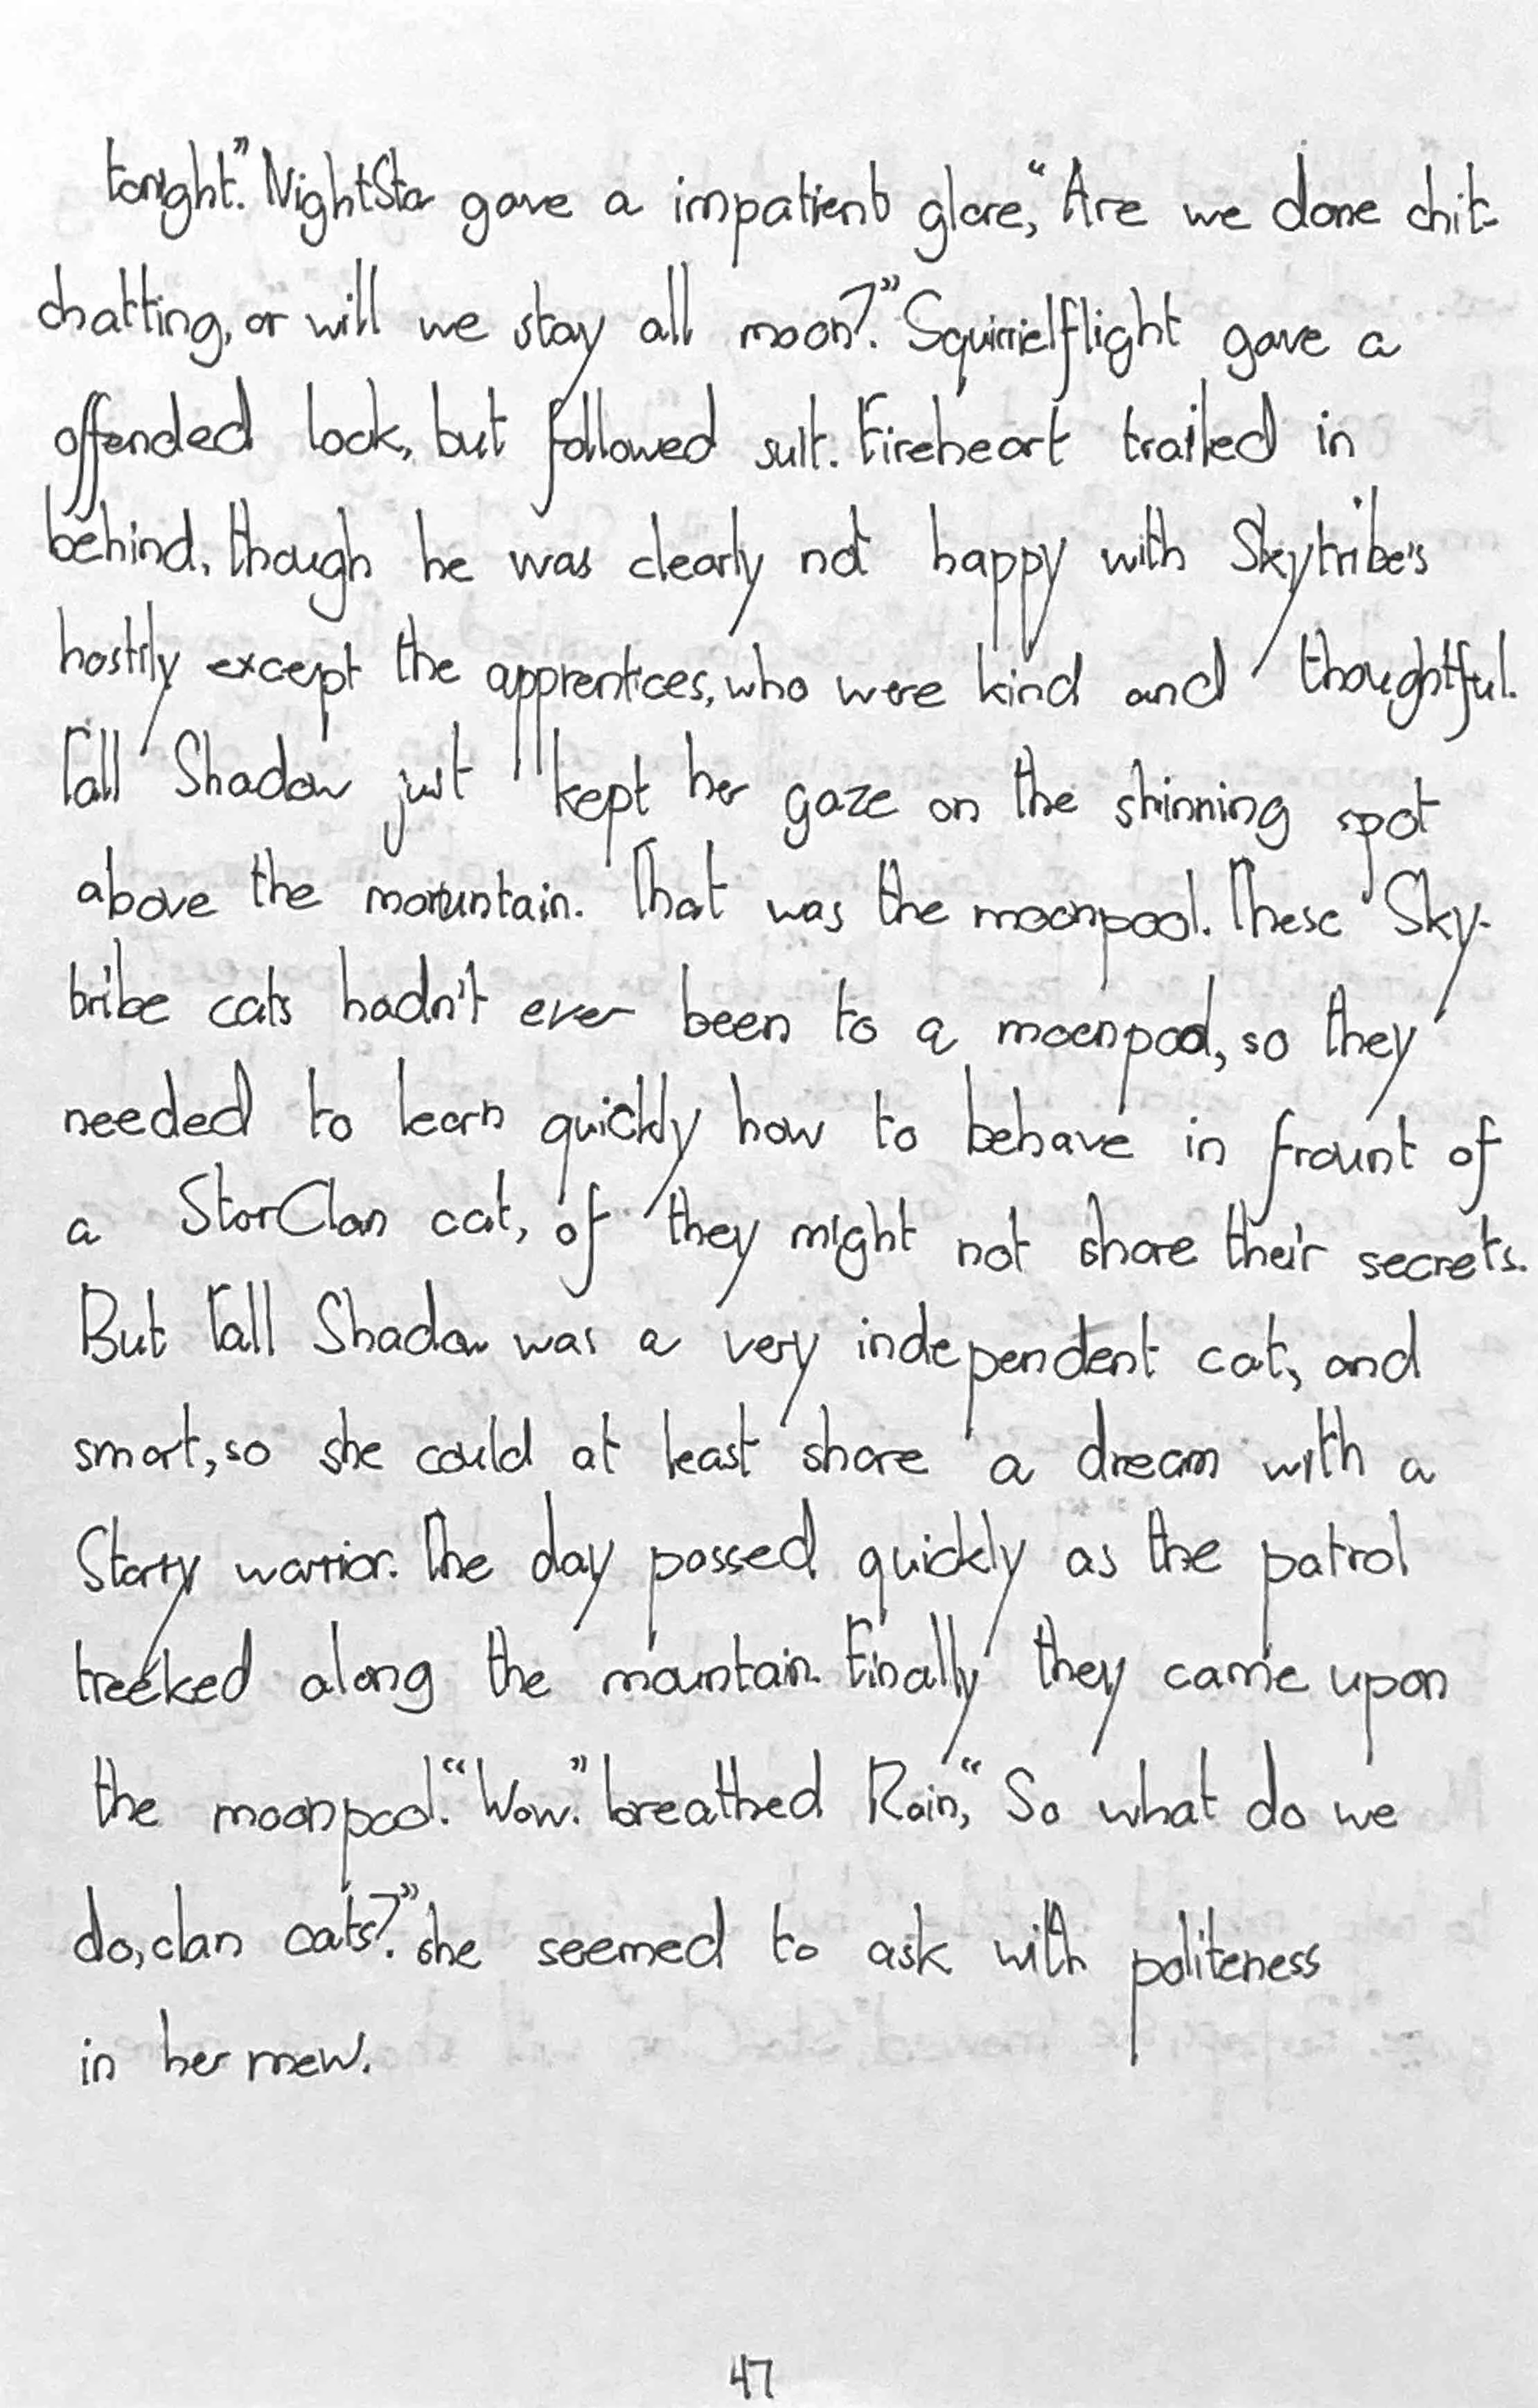 tonight." NightStar gave a impatient glare, "Are we done chit-
chatting, or will we stay all moon?" Squirrielflight gave a
offended look, but followed suit. Fireheart trailed in
behind, though he was clearly not happy with Skytribe's
hostily except the apprentices, who were kind and thoughtful.
Tall Shadow just kept her gaze on the shinning spot
above the mountain. That was the moonpool. These Sky-
tribe cats hadn't ever been to a moonpool, so they
needed to learn quickly how to behave in frount of
a StarClan cat, of they might not share their secrets.
But Tall Shadow was a very independent cat, and
smart, so she could at least share a dream with a
Starry warrior. The day passed quickly as the patrol
treeked along the mountain. Finally they came upon
the moonpool. "Wow." breathed Rain, "So what do we
do, clan cats?" she seemed to ask with politeness
in her mew.
47